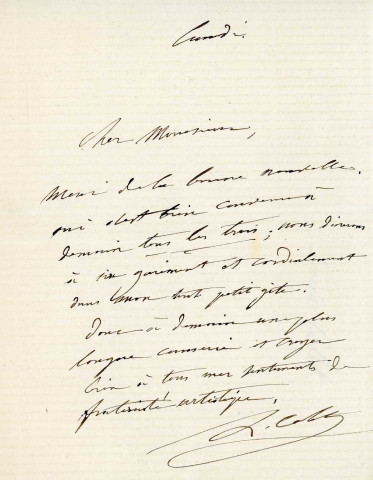 Lundi.
Cher Monsieur,
Merci de la bonne nouvelle.
oui c'est bien convenu à
demain tous les trois, nous dinerons
à six gaiement et cordialement
dans mon tout petit gîte.
Donc à demain une plus
longue causerie et croyez
bien à tous mes sentiments de
fraternité artistique.